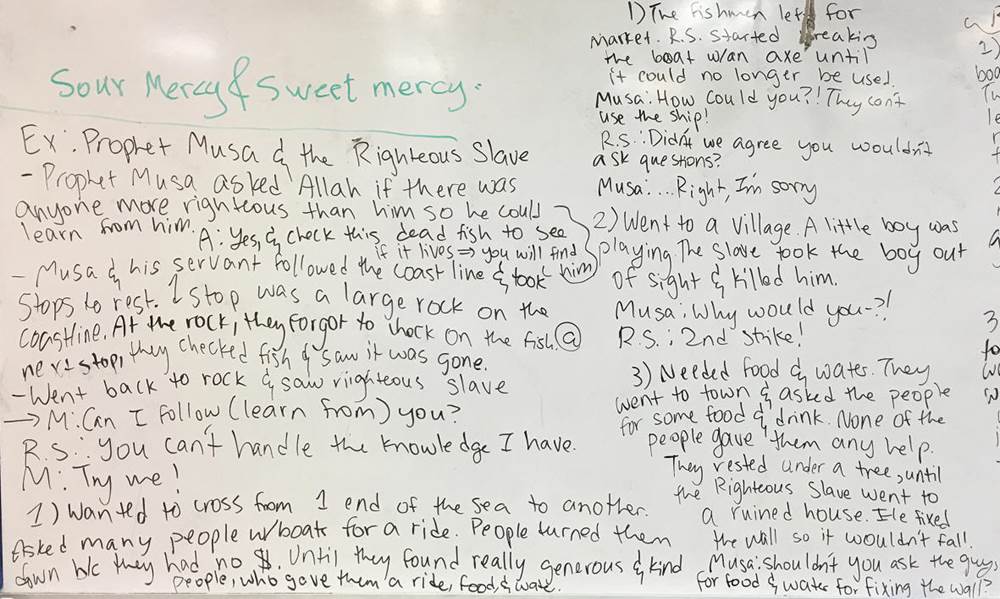 Sour Mercy & Sweet mercy.
Ex: Prophet Musa & the Righteous Slave
- Prophet Musa asked Allah if there was
anyone more righteous than him so he could
learn from him.
A: Yes, & check this dead fish to see
if it lives => you will find
him
- Musa & his servant followed the coast line & took
stops to rest. 1 stop was a large rock on the
coastline. At the rock, they forgot to check on the fish. @
next stop, they checked fish & saw it was gone.
- Went back to rock & saw riighteous slave
→ M: Can I follow (learn from) you?
R.S.: You can't handle the knowledge I have.
M: Try me!
1) Wanted to cross from 1 end of the sea to another.
Asked many people w/boats for a ride. People turned them
down b/c they had no $. Until they found really generous & kind
people, who gave them a ride, food, & wate.
1) The fishmen left for
market. R.S. started breaking
the boat w/an axe until
it could no longer be used.
Musa: How could you?! They can't
use the ship!
R.S.: Didn't we agree you wouldn't
ask questions?
Musa: ... Right, I'm sorry
2) Went to a village. A little boy was
playing. The slave took the boy out
of sight & killed him.
Musa: Why would you-?!
R.S.: 2nd strike!
3) Needed food & water. They
went to town & asked the people
for some food & drink. None of the
people gave them any help.
They rested under a tree, until
the Righteous Slave went to
a ruined house. He fixed
the wall so it wouldn't fall.
Musa: shouldn't you ask the guys
for food & water for fixing the wall?
2)
boa
3)